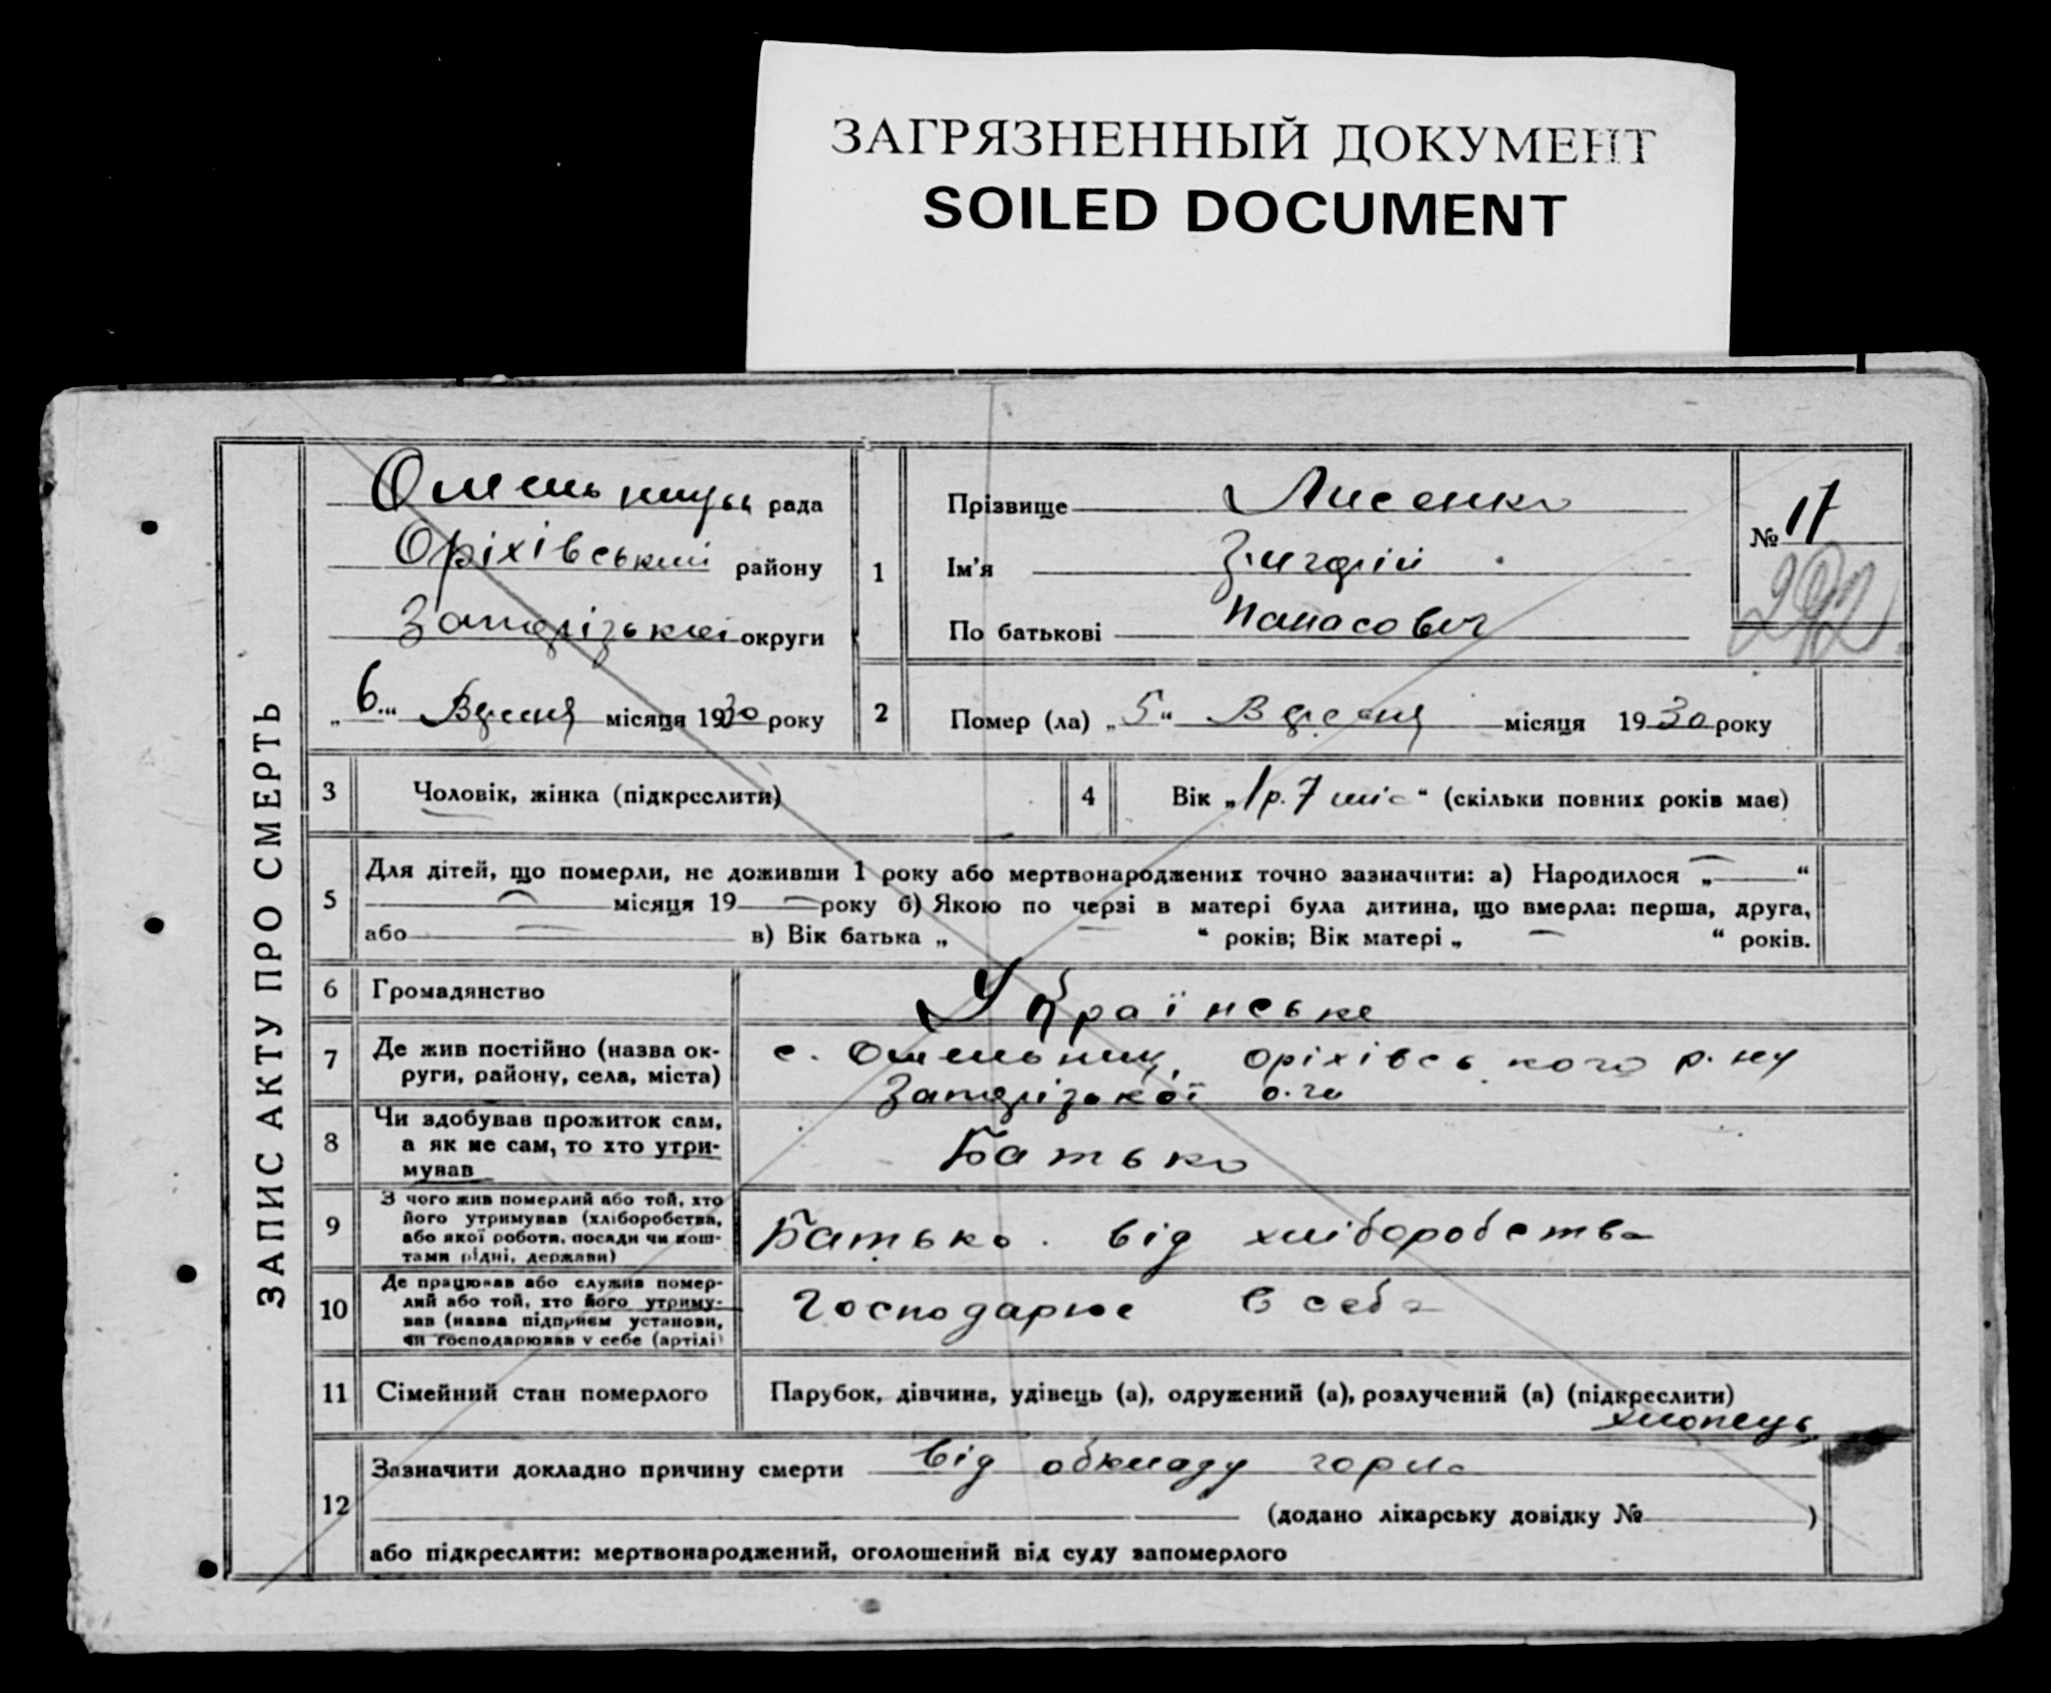 ЗАГРЯЗНЕННЫЙ ДОКУМЕНТ
SOILED DOCUMENT
ЗАПИС АКТУ ПРО СМЕРТЬ
рада
Оріхівський району
Запорізької округи
„6“ Вересня місяця 1930 року
1
Прізвище Лисенко
Ім’я
По батькові Панасович
№ 17
292
2
Помер (ла) „5“ Вересня місяця 1930 року
3
Чоловік, жінка (підкреслити)
4
Вік „1 р. 7 міс“ (скільки повних років має)
5
Для дітей, що померли, не доживши 1 року або мертвонароджених точно зазначити: а) Народилося „—“
— місяця 19 — року б) Якою по черзі в матері була дитина, що вмерла: перша, друга,
або — в) Вік батька „ — “ років; Вік матері „ — “ років.
6
Громадянство
Українське
7
Де жив постійно (назва ок-
руги, району, села, міста)
с. Омельник, Оріхівського р. ну
Запорізької о.ги
8
Чи здобував прожиток сам,
а як не сам, то хто утри-
мував
Батько
9
З чого жив померлий або той, хто
його утримував (хліборобства,
або якої роботи, посади чи кош-
тами рідні, держави)
Батько. від хліборобства
10
Де працював або служив помер-
лий або той, хто його утриму-
вав (назва підприєм установи,
чи господарював у себе (артілі)
Господарює в себе
11
Сімейний стан померлого
Парубок, дівчина, удівець (а), одружений (а), розлучений (а) (підкреслити)
хлопець
12
Зазначити докладно причину смерти від обкладу горла
(додано лікарську довідку № )
або підкреслити: мертвонароджений, оголошений від суду запомерлого